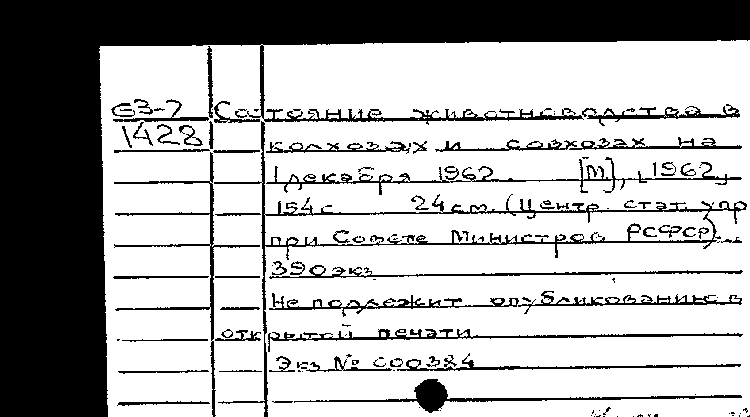 63-7 Состояние животноводства в
1428 колхозах и совхозах на
1 декабря 1962. [М], [1962]
154с. 24см. (Центр. стат. упр
при Совете Министров РСФСР)
390 экз
Не подлежит опубликованию в
открытой печати
Экз № 000384